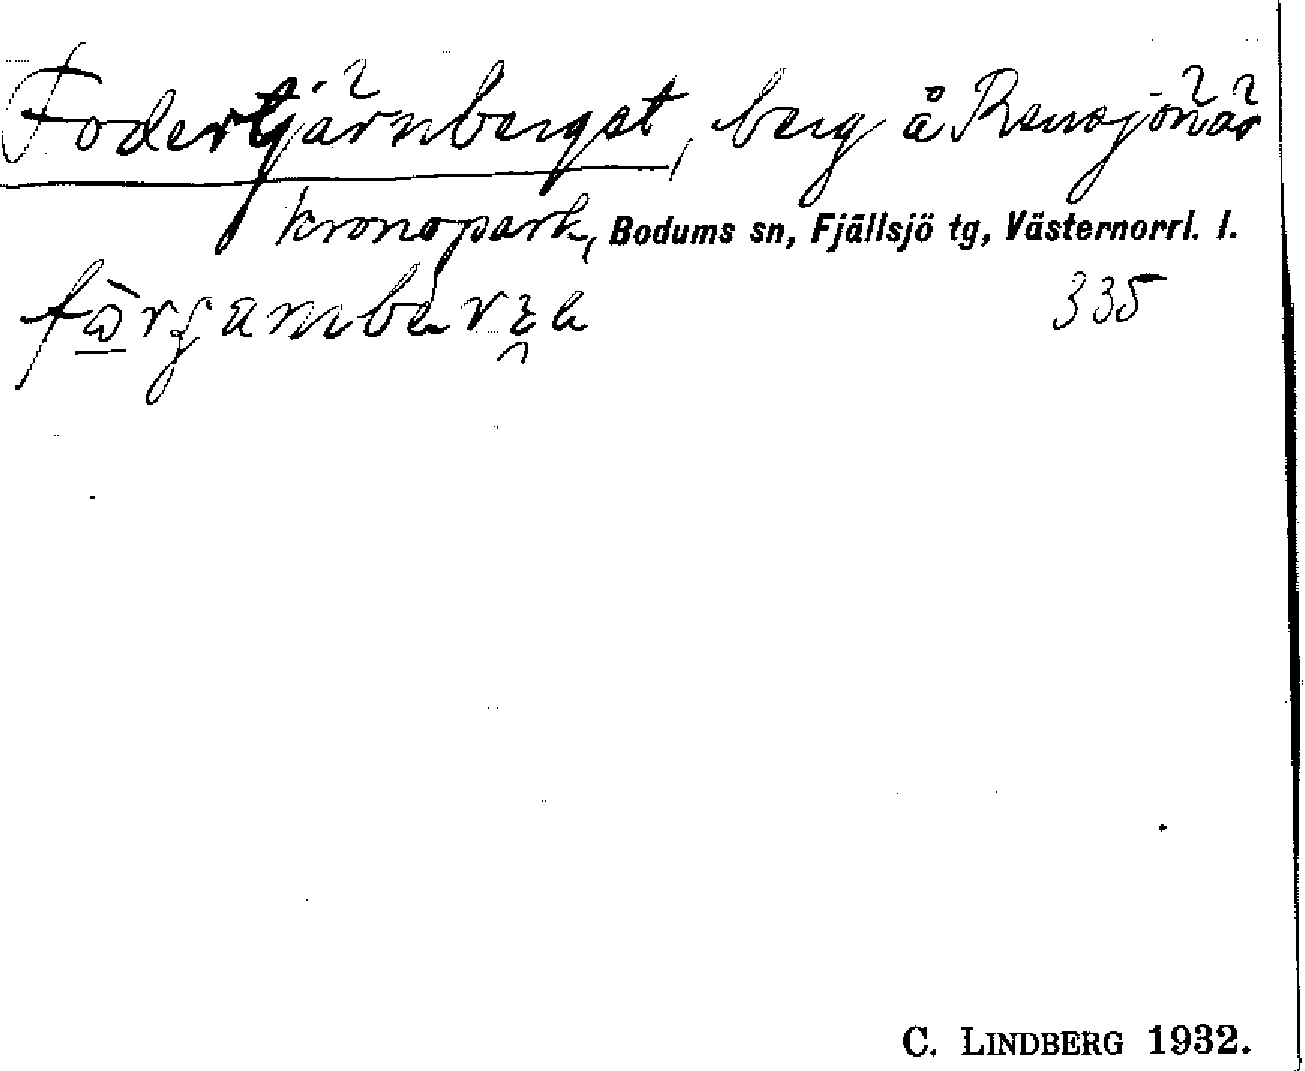 Fodertjärnberget, berg å Rensjönäs
kronopark, Bodums sn, Fjällsjö tg, Västernorrl. l.
335
C. LINDBERG 1932.